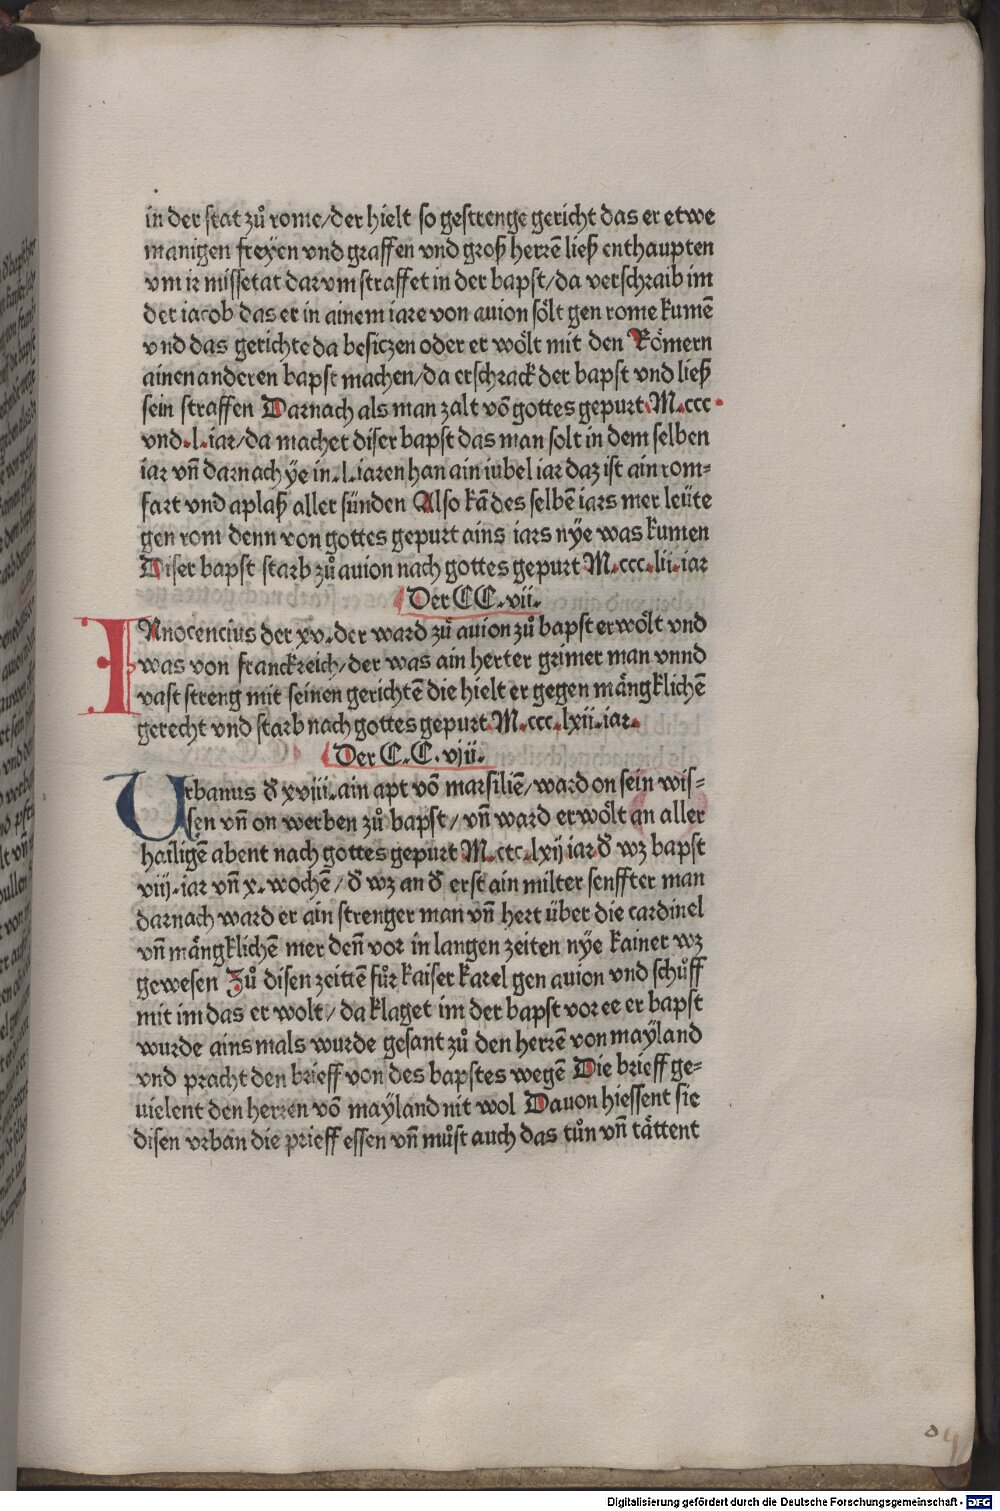 in der stat zuͦ rome/der hielt so gestrenge gericht das er etwe
manigen freyen vnd graffen vnd groß herrē ließ enthaupten
vm ir missetat darvm straffet in der bapst/da verschraib im
der iacob das er in ainem iare von auion soͤlt gen rome kumē
vnd das gerichte da besiczen oder er woͤlt mit den Roͤmern
ainen anderen bapst machen/da erschrack der bapst vnd ließ
sein straffen Darnach als man zalt vō gottes gepurt.M.ccc.
vnd.l.iar/da machet diser bapst das man solt in dem selben
iar vn̄ darnach ÿe in.l.iaren han ain iubel iar daz ist ain rom⸗
fart vnd aplaß aller sünden Also kā des selbē iars mer leüte
gen rom denn von gottes gepurt ains iars nÿe was kumen
Diser bapst starb zuͦ auion nach gottes gepurt M.ccc.lii.iar
Der CC.vii.
INnocencius der xv.der ward zuͦ auion zuͦ bapst erwoͤlt vnd
was von franckreich/der was ain herter grimer man vnnd
vast streng mit seinen gerichtē die hielt er gegen maͤngklichē
gerecht vnd starb nach gottes gepurt M.ccc.lxii.iar.
Der C.C.viii.
Urbanus đ xviii.ain apt vō marsiliē/ward on sein wis⸗
sen vn̄ on werben zuͦ bapst/vn̄ ward erwoͤlt an aller
hailigē abent nach gottes gepurt M.ccc.lxij iar.đ wz bapst
viij.iar vn̄ x.wochē/đ wz an đ erst ain milter senffter man
darnach ward er ain strenger man vn̄ hert über die cardinel
vn̄ maͤngklichē mer den̄ vor in langen zeiten nÿe kainer wz
gewesen Zuͦ disen zeittē fuͦr kaiser karel gen auion vnd schuͦff
mit im das er wolt/da klaget im der bapst vor ee er bapst
wurde ains mals wurde gesant zuͦ den herrē von maÿland
vnd pracht den brieff von des bapstes wegē Die brieff ge⸗
uielent den herren vō maÿland nit wol Dauon hiessent sie
disen vrban die prieff essen vn̄ muͦst auch das tuͦn vn̄ taͤttent
Digitalisierung gefördert durch die Deutsche Forschungsgemeinschaft - DFG